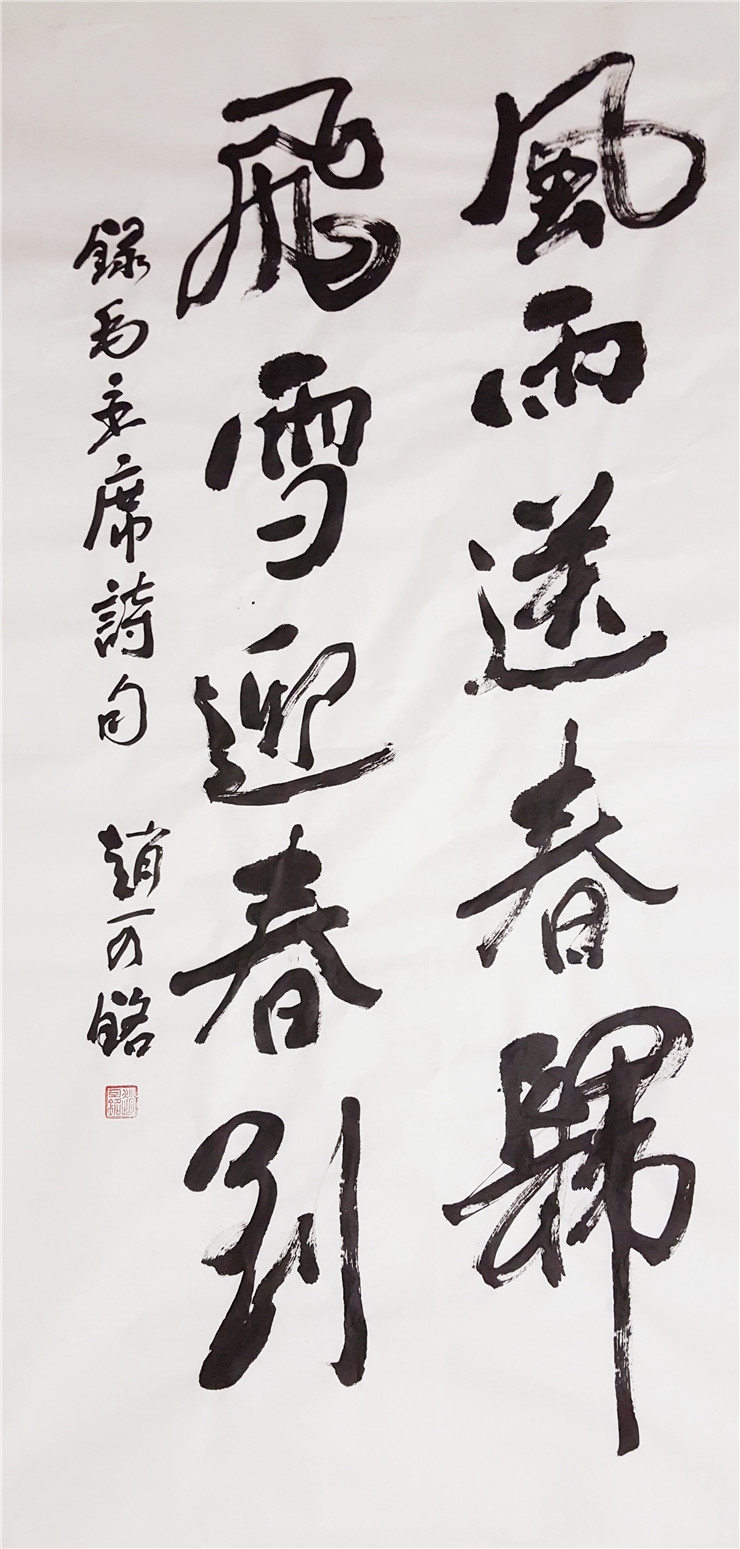 風雨送春歸
飛雪迎春到
錄毛主席詩句 趙可銘